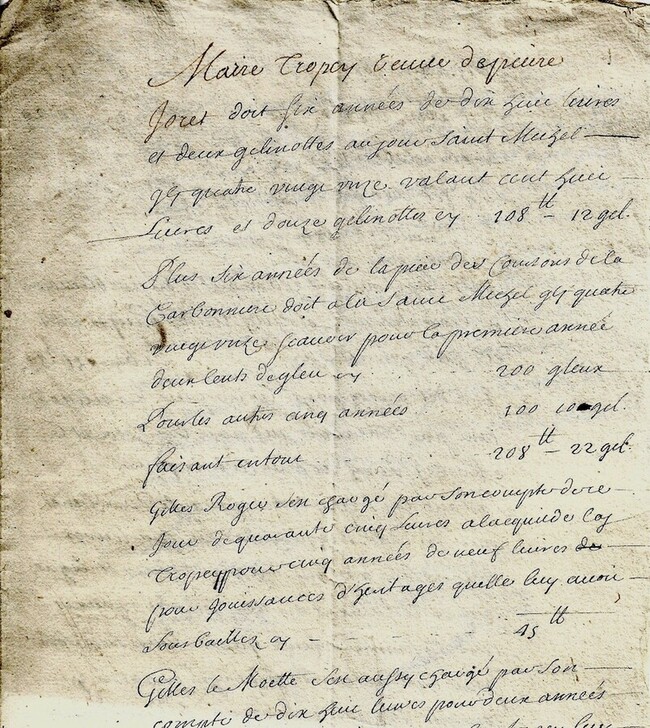 Marie Tropey veuve de pierre
Joret doit six années de dix huit livres
et deux gelinottes au jour Saint Michel
quatre vingt unze valant cent huit
Livres et douze gelinottes cy 108 tt – 12 gel.
Plus six années de la piece des Coursons de la
Carbonniere doit a la Saint Michel quatre
vingt unze scavoir pour la premiere année
deux cents de gleu cy 200 gleux
Pour les autres cinq années 100 10 gel.
faisant en tout 208 tt – 22 gel.
Gilles Roger s'en chargé par son compte de ce
Jour de quarante cinq livres a la de
Tropey pour cinq années de neuf livres de
pour Jouissances d'heritages quelle luy avoit
sous baillez cy – 45 tt
Gilles le Moette s'en aussy chargé par son
compte de dix huit livres pour deux années